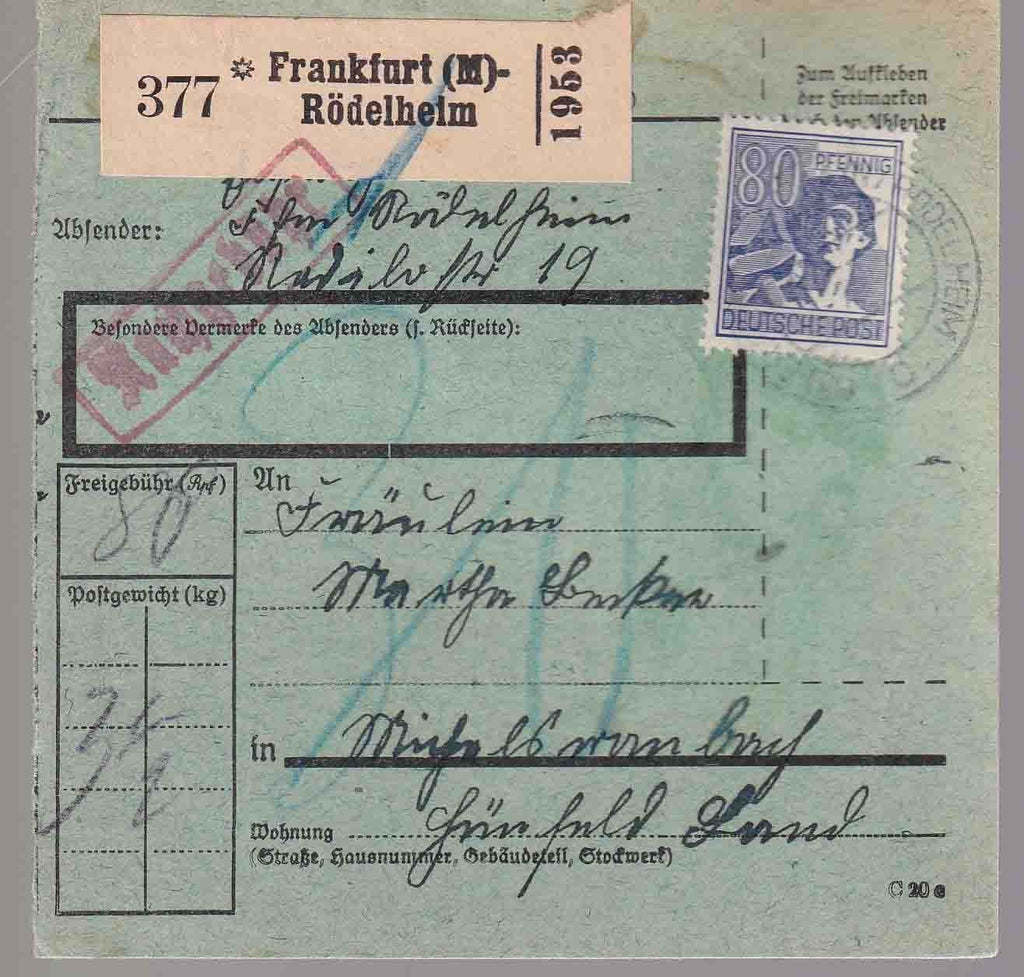 377 * Frankfurt (M)-
Rödelheim
1953
Zum Aufkleben
der Freimarken
durch den Absender
80 PFENNIG
DEUTSCHE POST
RÖDELHEIM
Absender:
Ffm Rödelheim
str 19
Besondere Vermerke des Absenders (s. Rückseite):
Freigebühr (Rpf)
80
Postgewicht (kg)
An
Fräulein
Martha Becker
in
Wohnung Hünfeld Land
(Straße, Hausnummer, Gebäudeteil, Stockwerk)
C 20 e